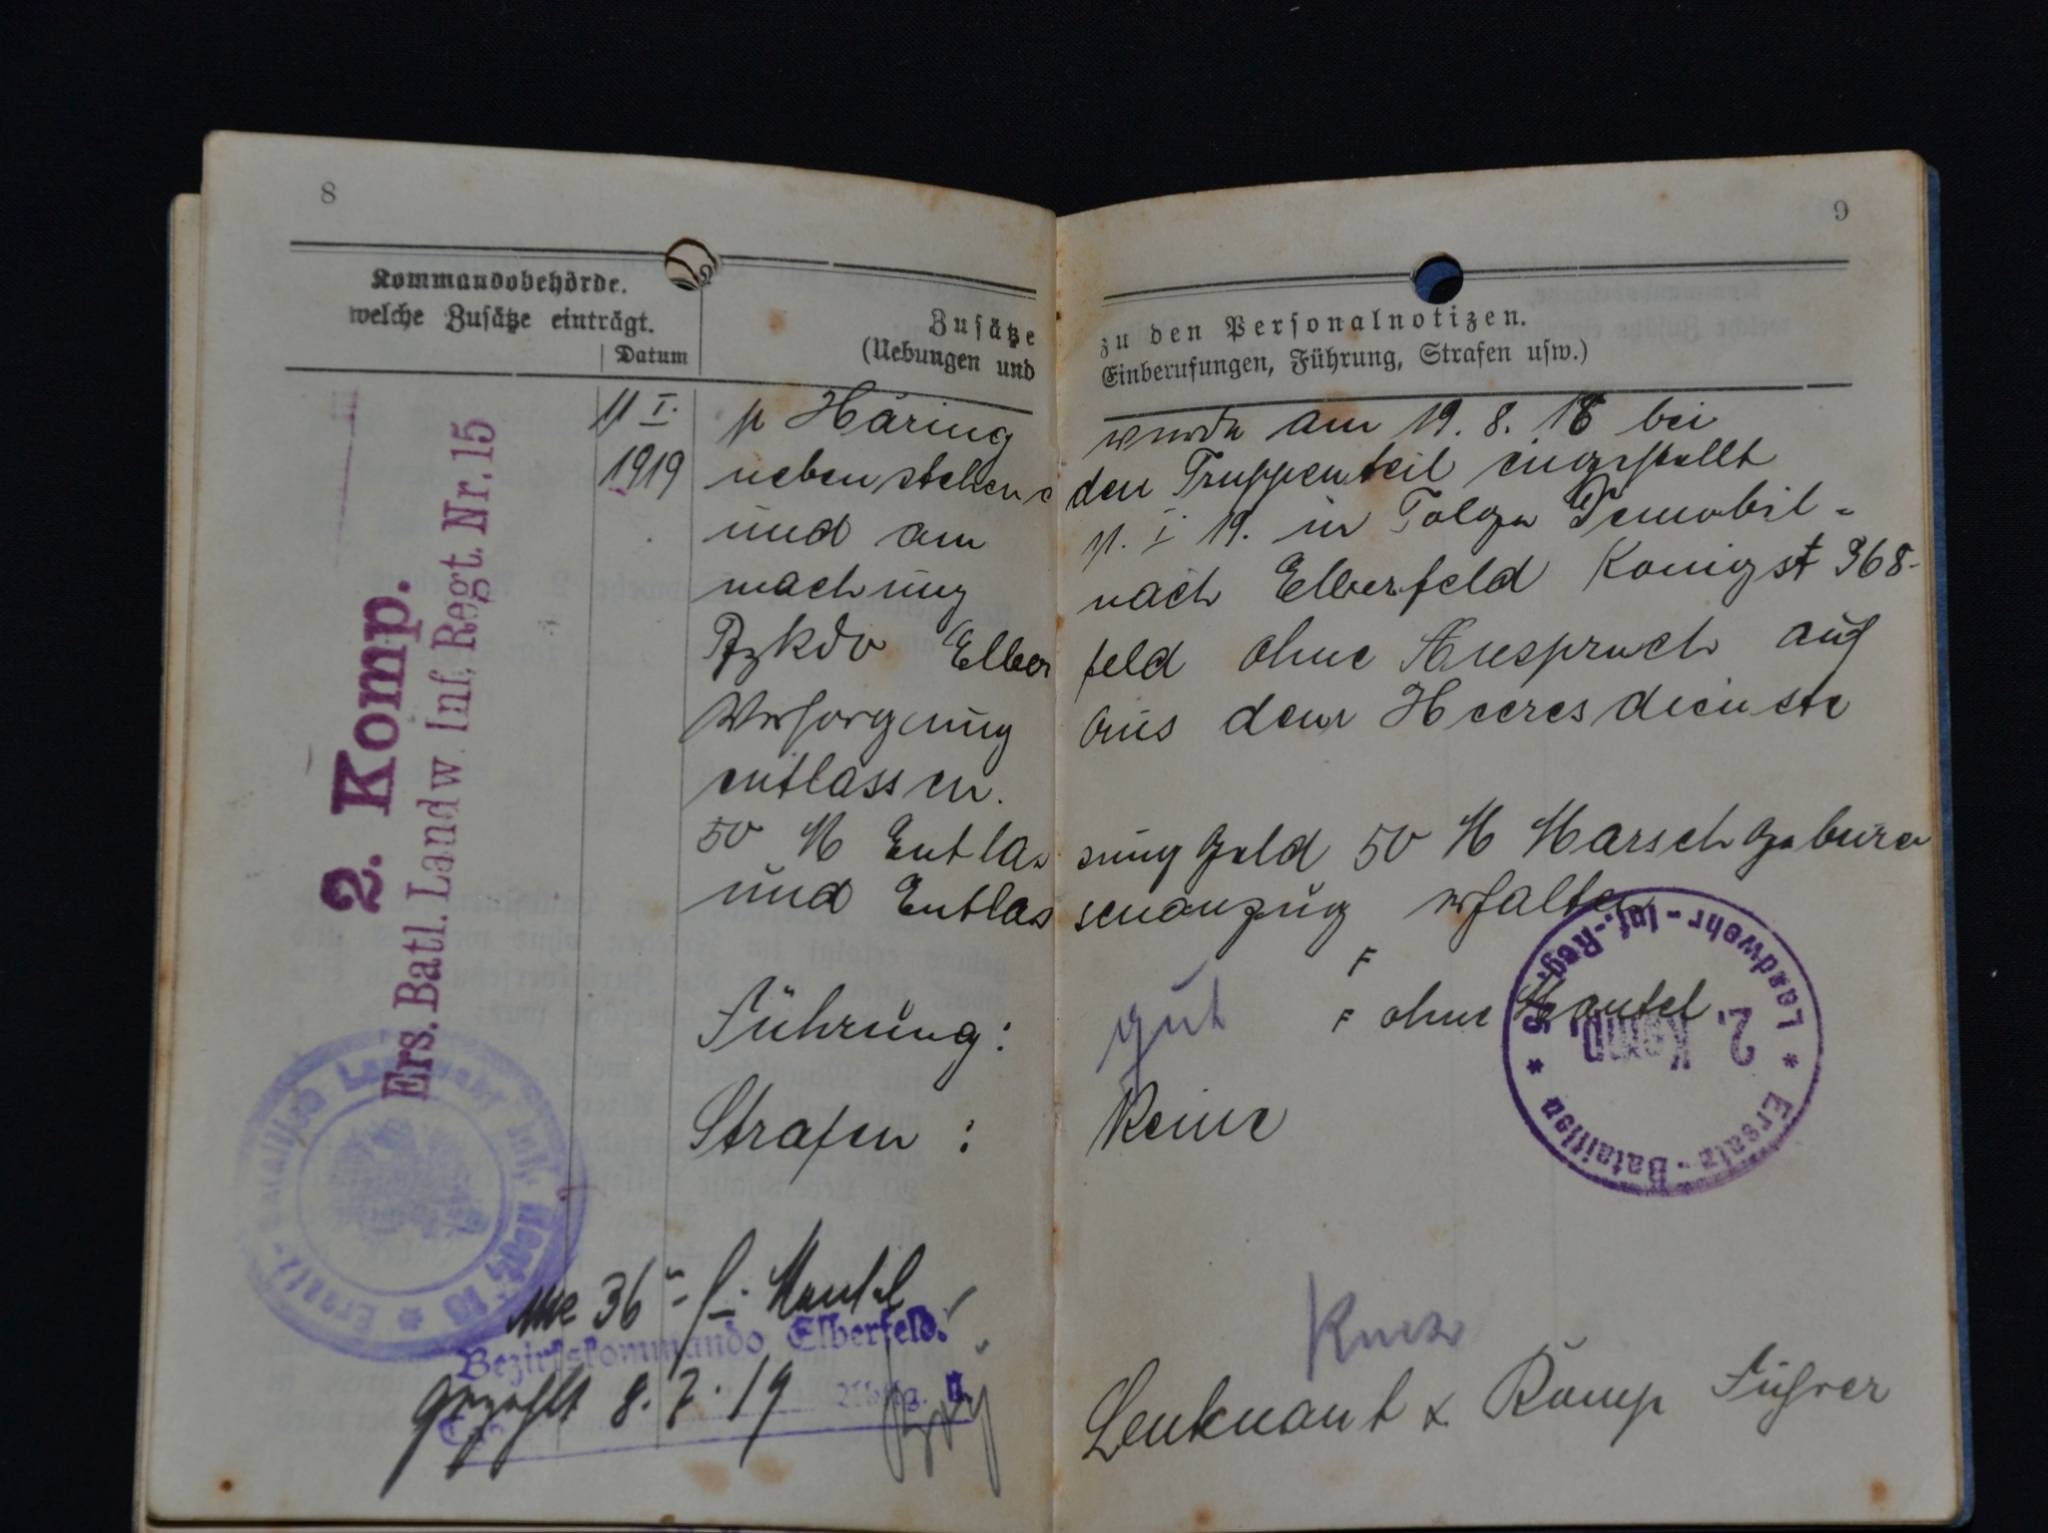 8
Kommandobehörde.
welche Zusätze einträgt.
Datum
Zusätze
(Uebungen und
2. Komp.
Ers. Batl. Landw. Inf. Regt. Nr. 15
11 I.
1919
p Häring
nebenstehen
und am
machung
Bzkdo Elber
Versorgung
entlassen.
50 M Entlas
und Entlas
Führung:
Strafen :
36 f. Mantel
Bezirkskommando Elberfeld.
gezahlt 8. 7. 19
Ersatz-Bataillon Landwehr Inf. Regt. 15
9
zu den Personalnotizen.
Einberufungen, Führung, Strafen usw.)
wurde am 19. 8. 18 bei
den Truppenteil eingestellt
11. I 19. in Folge Demobil-
nach Elberfeld Königst 368-
feld ohne Anspruch auf
aus dem Heeresdienste
sungGeld 50 M Marschgebüren
senanzug erhalten
F
F ohne Mantel
gut
Keine
Landwehr-Inf.-Reg. 15 * Ersatz-Bataillon *
2. Komp.
Leutnant & Komp Führer